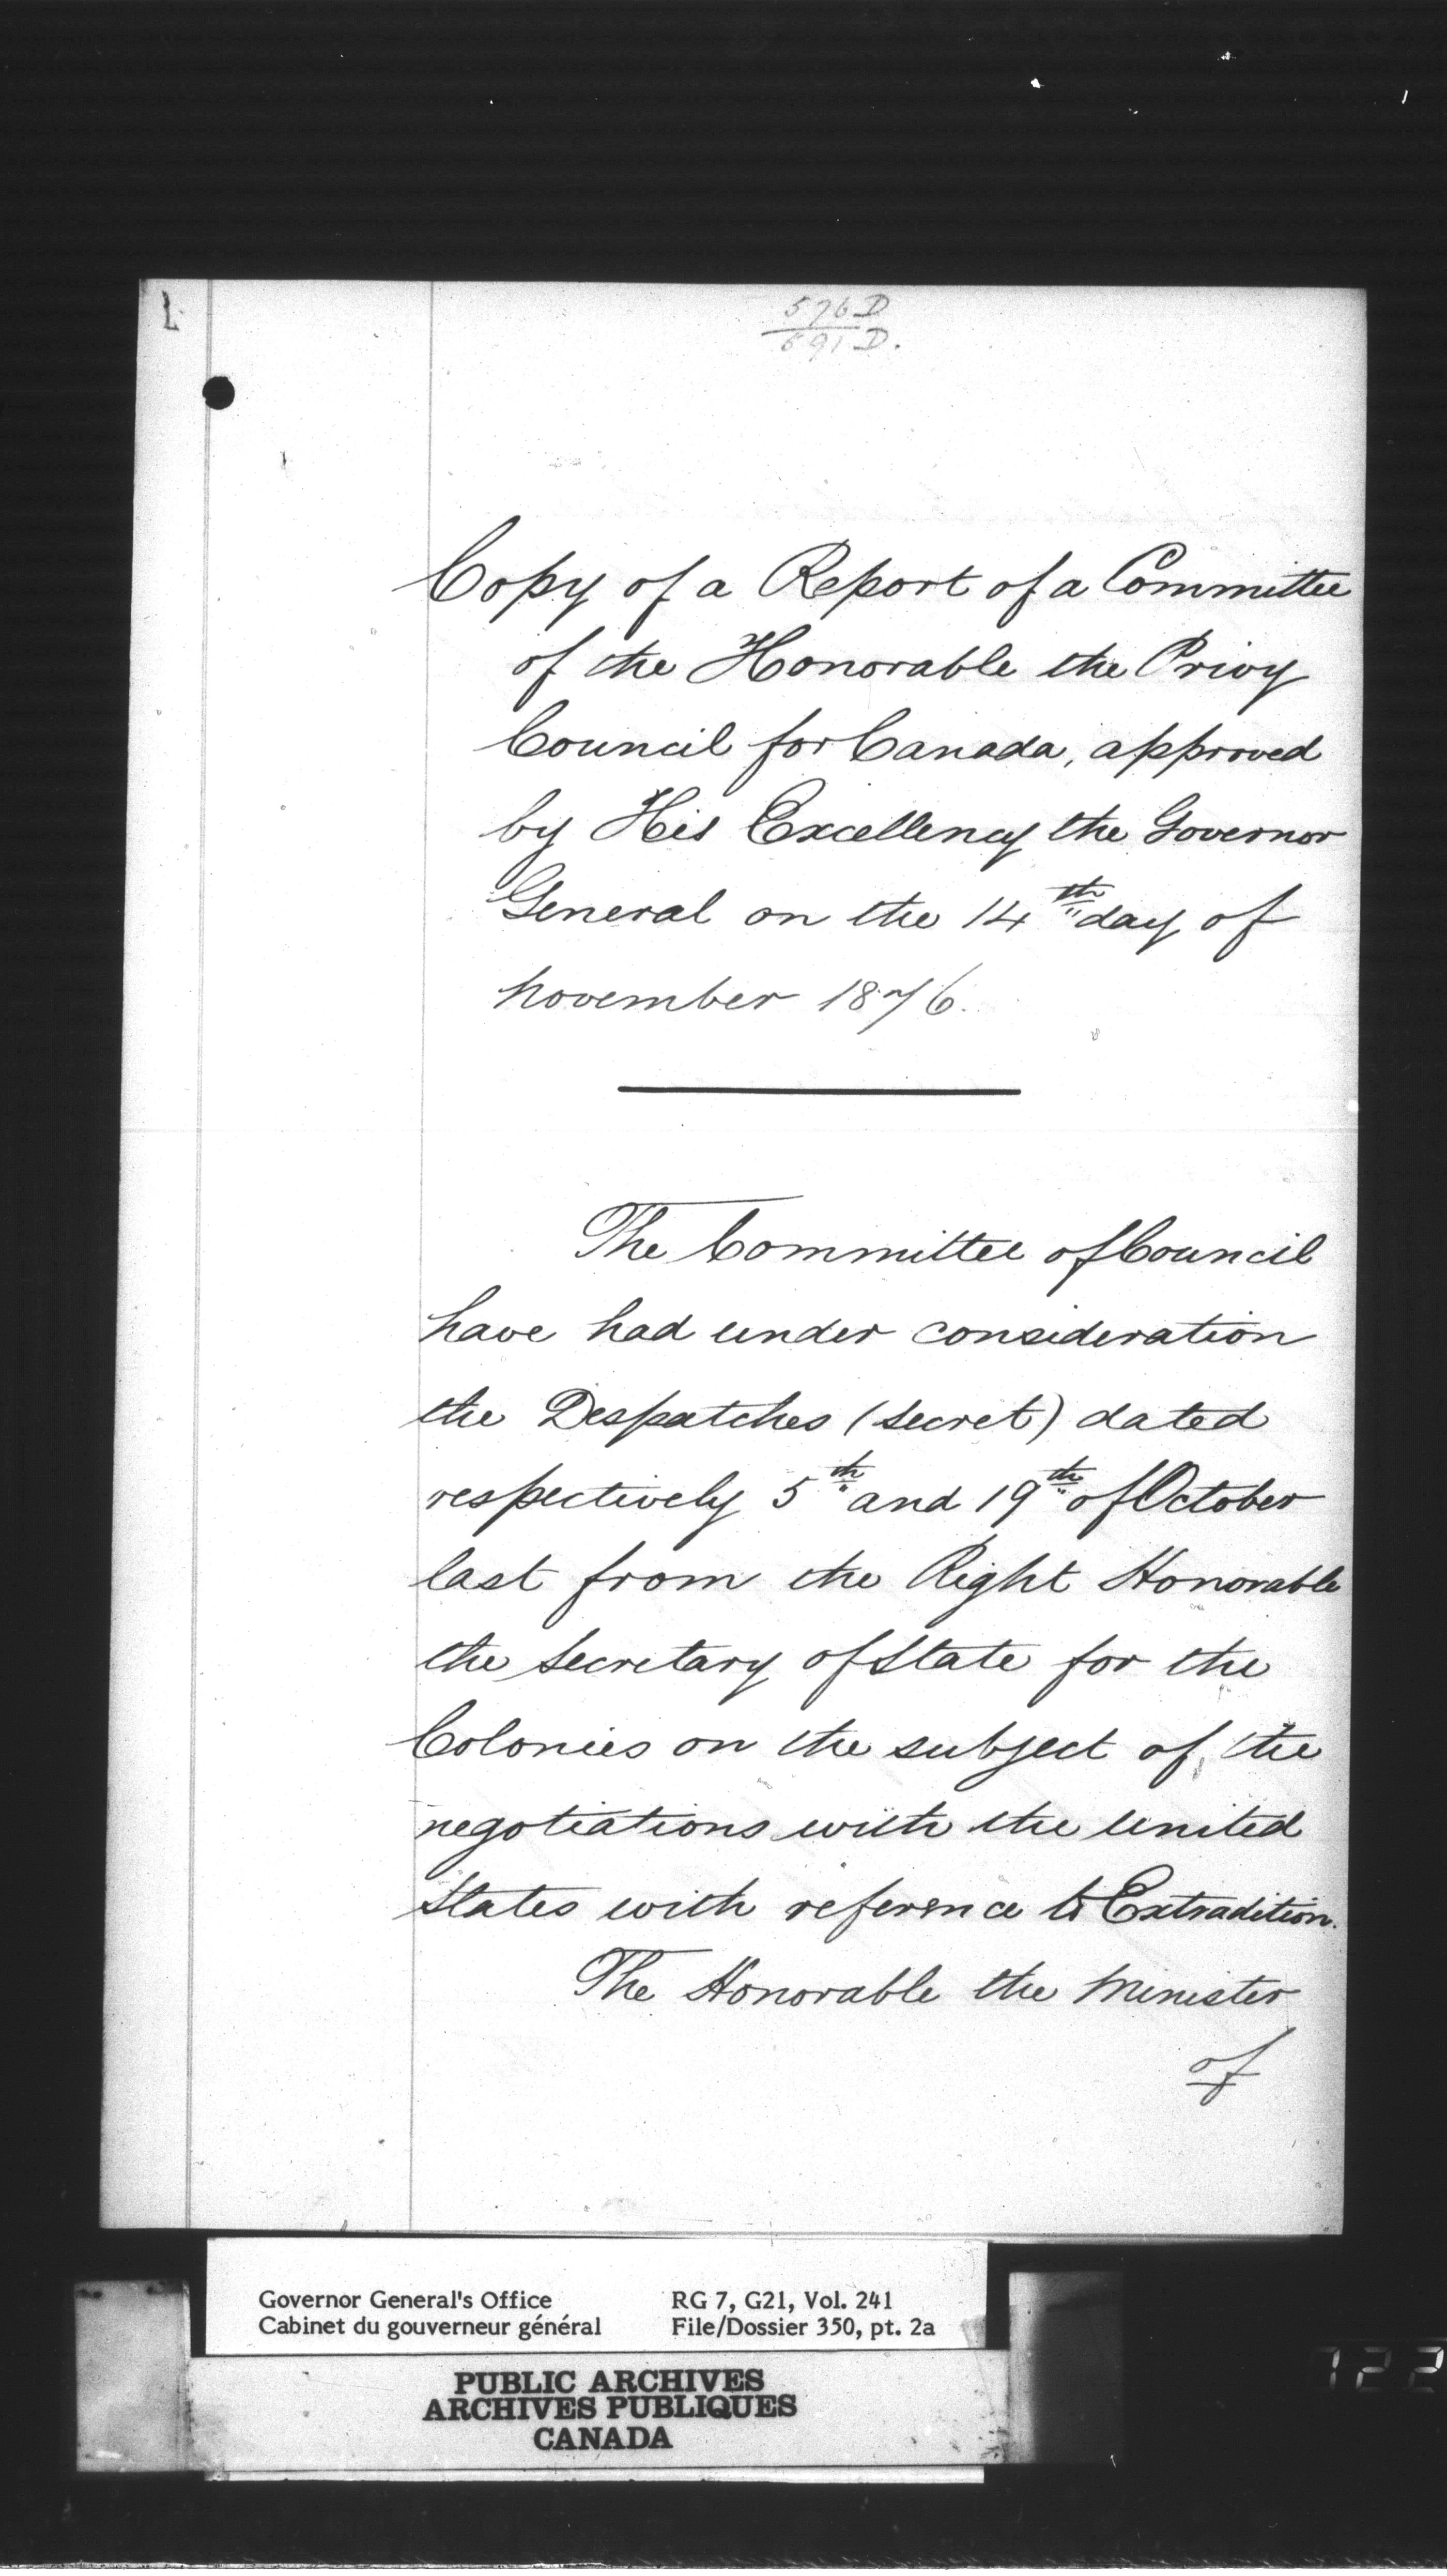 1
576 D
691 D.
Copy of a Report of a Committee
of the Honorable the Privy
Council for Canada, approved
by His Excellency the Governor
General on the 14th day of
November 1876.
The Committee of Council
have had under consideration
the Despatches (secret) dated
respectively 5th and 19th of October
last from the Right Honorable
the Secretary of State for the
Colonies on the subject of the
negotiations with the United
States with reference to Extradition.
The Honorable the Minister
of
Governor General's Office
Cabinet du gouverneur général
RG 7, G21, Vol. 241
File/Dossier 350, pt. 2a
PUBLIC ARCHIVES
ARCHIVES PUBLIQUES
CANADA
122